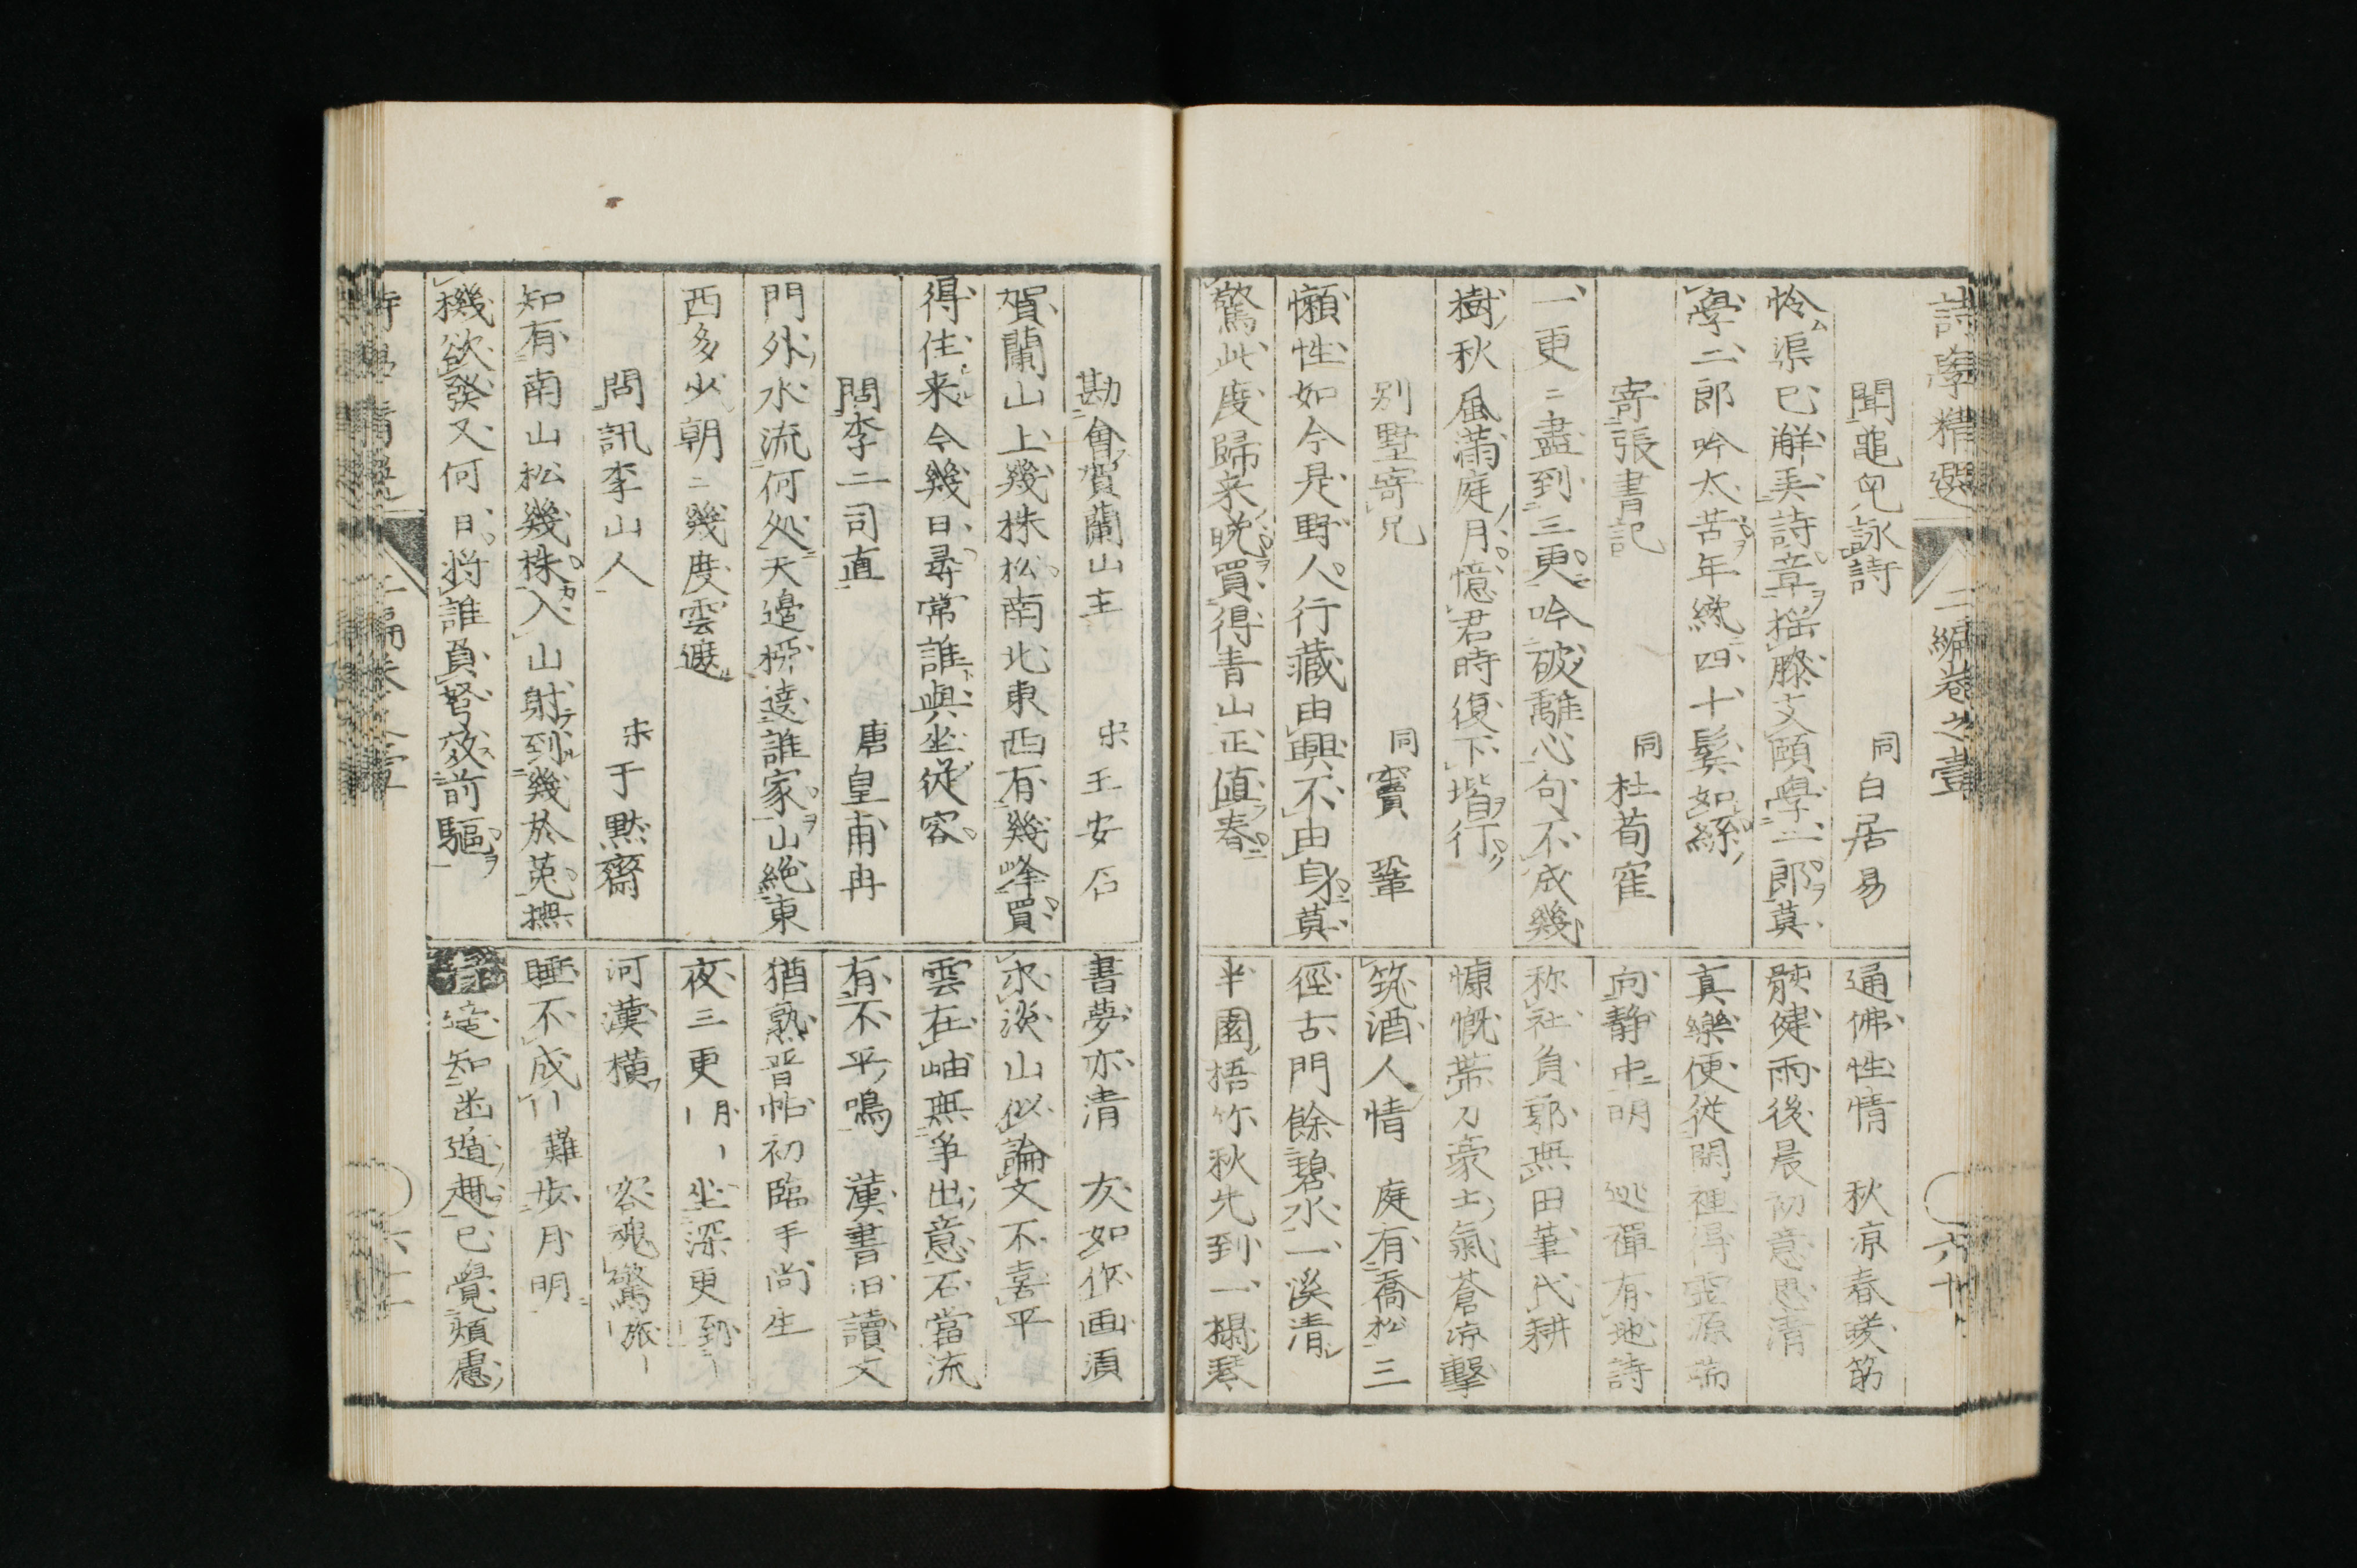 詩學精選 二編卷之壹 六十
聞龜兒詠詩 同 白居易
怜渠已解弄詩章揺膝支頤學二郎莫
學二郎吟太苦年纔四十鬂如絲
寄張書記 同 杜荀寉
一更〻盡到三更吟破離心句不成幾
樹秋風滿庭月憶君時復下堦行
別墅寄兄 同 竇鞏
懶性如今是野人行藏由興不由身莫
驚此度歸來晚買得青山正値春
通佛性情 秋凉春暖筋
骸健雨後晨初意思清
真樂便從閑裡得霊源端
向靜中明 逃禪有地詩
称社負郭無田筆代耕
慷慨帯刀豪士氣蒼凉擊
筑酒人情 庭有喬松三
徑古門餘碧水一溪清
半園梧竹秋先到一榻琴
勘會賀蘭山主 宋 王安石
賀蘭山上幾株松南北東西有幾峰買
得住来今幾日尋常誰與坐從容
問李二司直 唐 皇甫冉
門外水流何処天邊栁遶誰家山絶東
西多少朝〻幾度雲遮
問訊李山人 宋 于黙齋
知有南山松幾株入山射到幾於菟撫
機欲發又何日将誰負弩效前驅
書夢亦清 友如作画須
求淡山似論文不喜平
雲在岫無爭出意石當流
有不平鳴 漢書旧讀文
猶熟晋帖初臨手尚生
夜三更 月 坐深更到
河漢横 客魂驚 旅
睡不成 難 步月明
知幽遁趣已覺頬慮